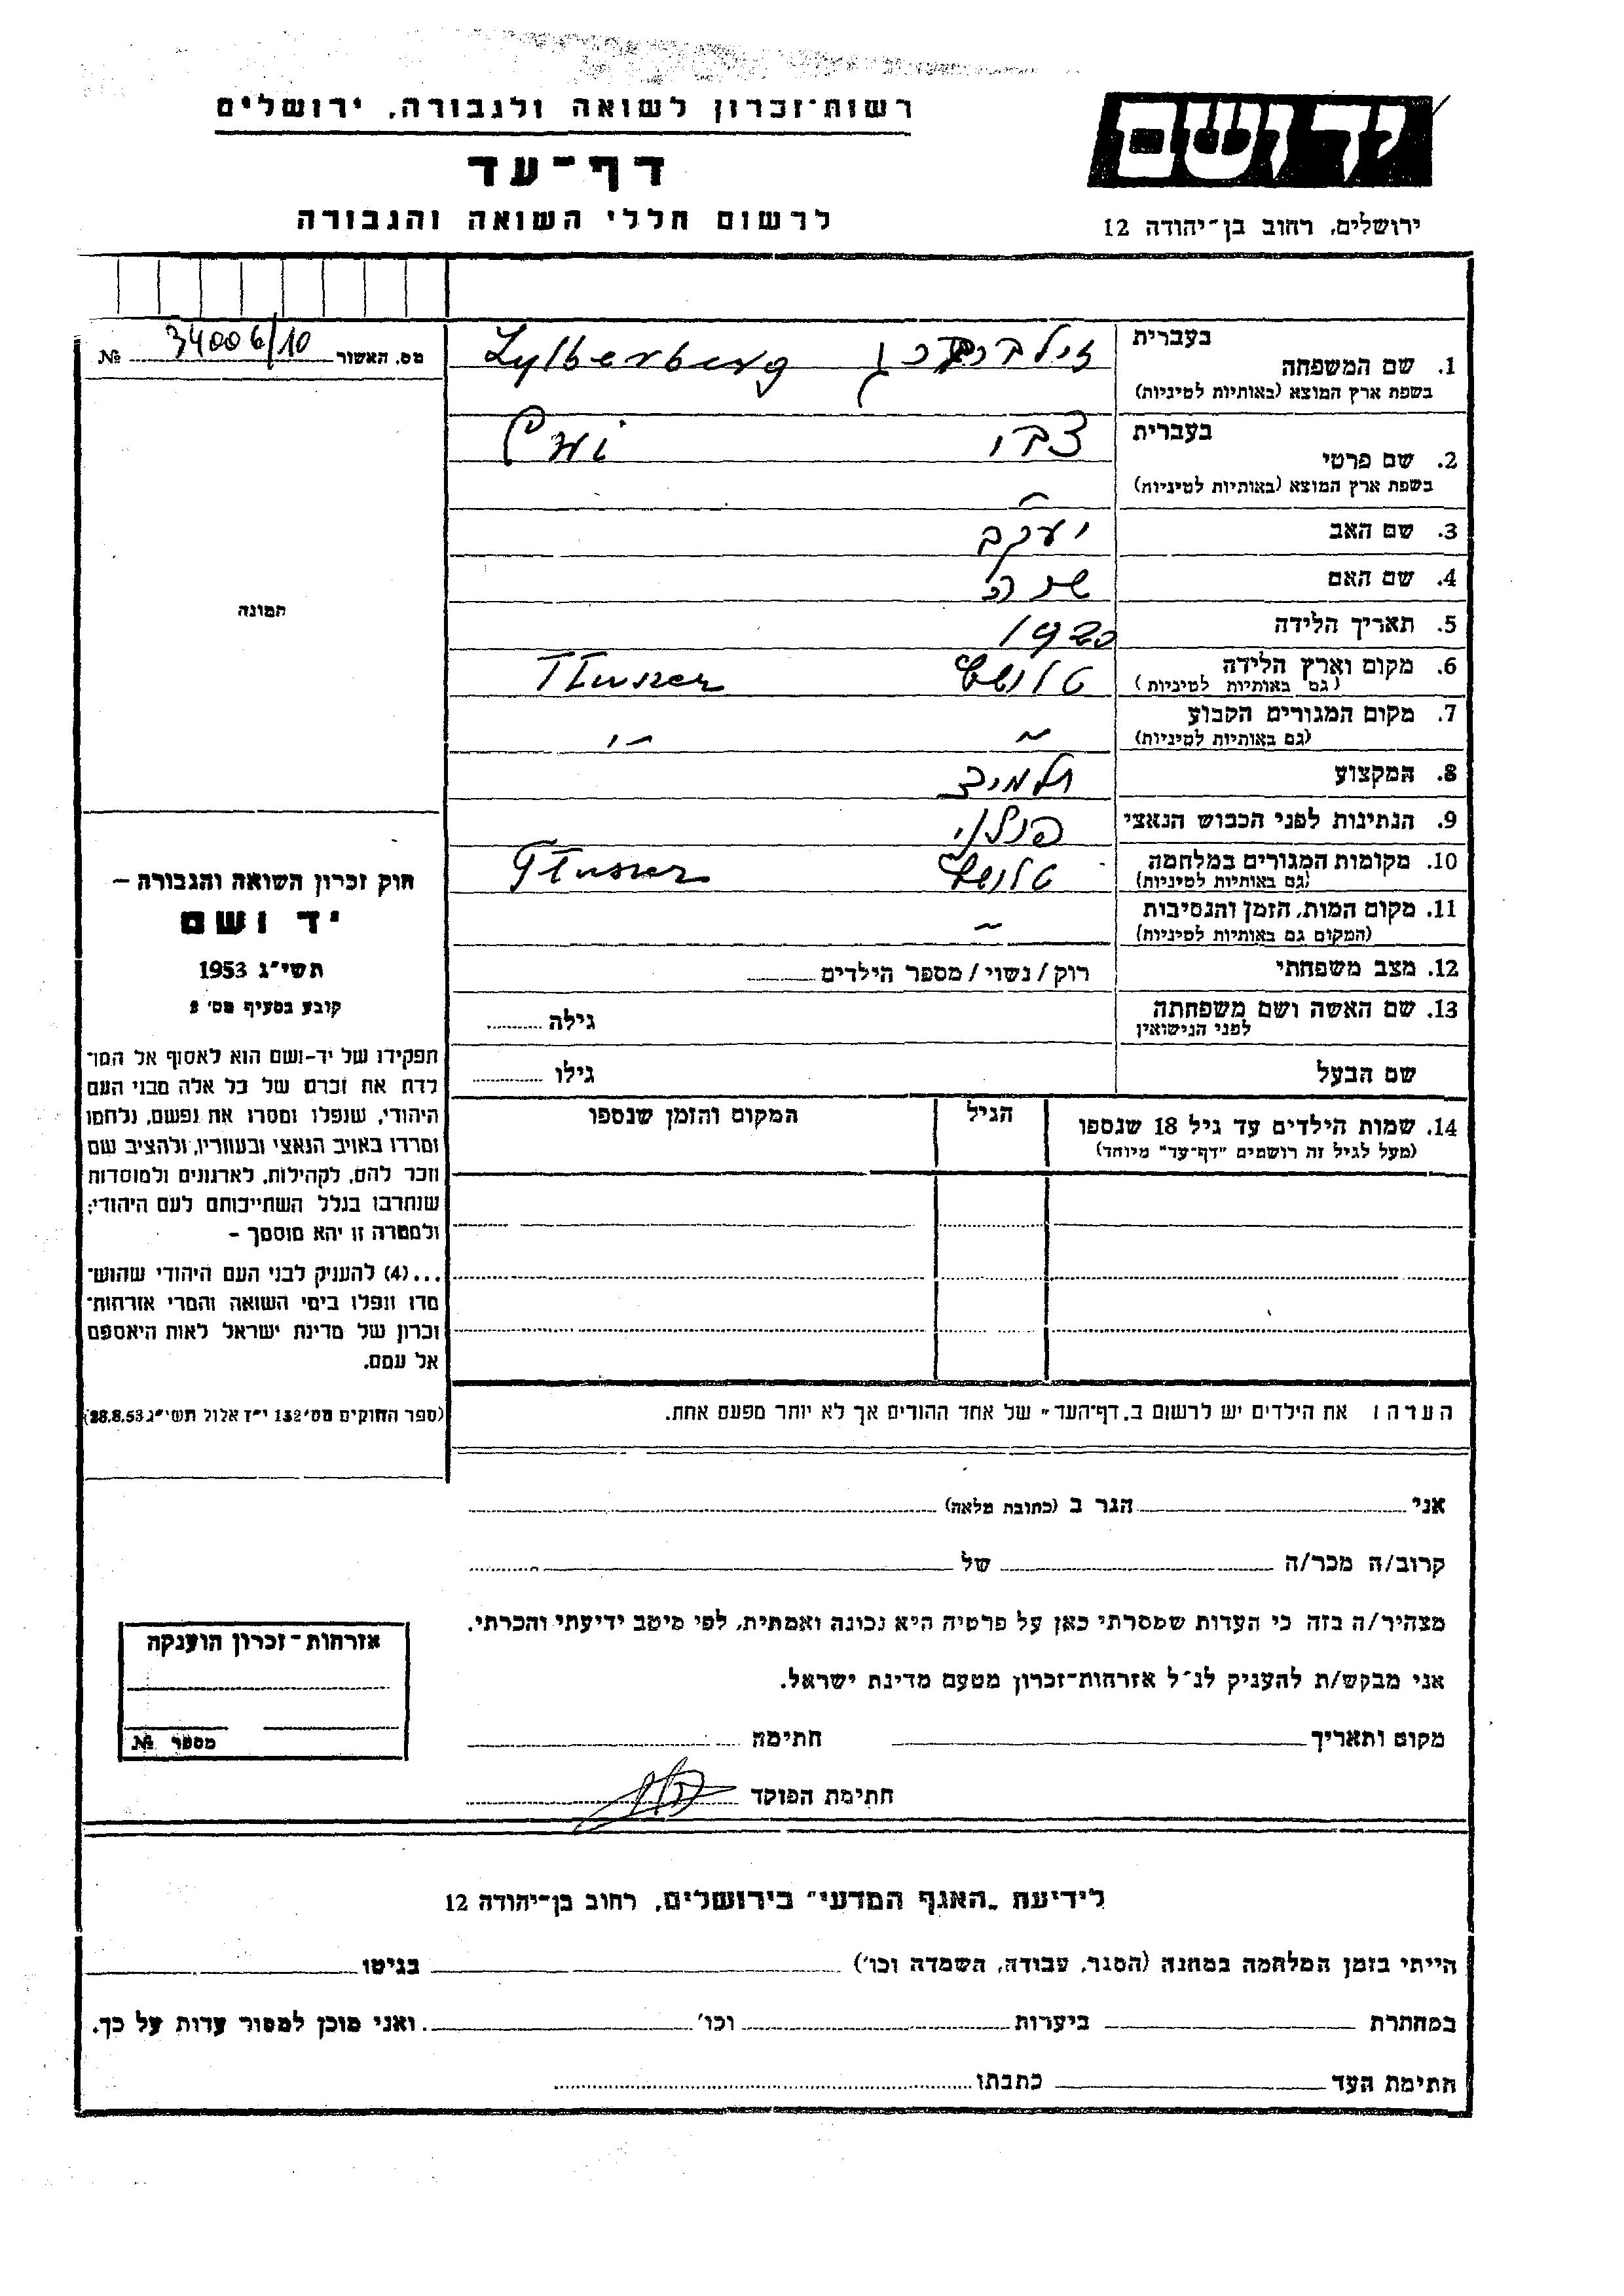 רשות-זכרון לשואה ולגבורה, ירושלים
יד ושם
דף-עד
לרשום חללי השואה והגבורה
ירושלים, רחוב בן-יהודה 12
מס. האשור 34006/10 №
בעברית
1. שם המשפחה זילברברג Zylberberg
בשפת ארץ המוצא (באותיות לטיניות)
בעברית
2. שם פרטי צבי Cwi
בשפת ארץ המוצא (באותיות לטיניות)
3. שם האב יעקב
4. שם האם שרה
5. תאריך הלידה 1920
6. מקום וארץ הלידה טלושץ Tłuszcz
(גם באותיות לטיניות)
7. מקום המגורים הקבוע
(גם באותיות לטיניות)
8. המקצוע תלמיד
9. הנתינות לפני הכבוש הנאצי פולני
10. מקומות המגורים במלחמה טלושץ Tłuszcz
(גם באותיות לטיניות)
11. מקום המות, הזמן והנסיבות
(המקום גם באותיות לטיניות)
12. מצב משפחתי רוק/נשוי/מספר הילדים
13. שם האשה ושם משפחתה גילה
לפני הנישואין
שם הבעל גילו
14. שמות הילדים עד גיל 18 שנספו הגיל המקום והזמן שנספו
(מעל לגיל זה רושמים "דף-עד" מיוחד)
הערה: את הילדים יש לרשום ב„דף-העד" של אחד ההורים אך לא יותר מפעם אחת.
התמונה
חוק זכרון השואה והגבורה –
יד ושם
תשי"ג 1953
קובע בסעיף מס' 2
תפקידו של יד-ושם הוא לאסוף אל המו־
לדת את זכרם של כל אלה מבני העם
היהודי, שנפלו ומסרו את נפשם, נלחמו
ומרדו באויב הנאצי ובעוזריו, ולהציב שם
וזכר להם, לקהילות, לארגונים ולמוסדות
שנחרבו בגלל השתייכותם לעם היהודי;
ולמטרה זו יהא מוסמך –
...(4) להעניק לבני העם היהודי שהוש־
מדו ונפלו בימי השואה והמרי אזרחות־
זכרון של מדינת ישראל לאות היאספם
אל עמם.
(ספר החוקים מס' 132 י"ז אלול תשי"ג 28.8.53)
אני הגר ב (כתובת מלאה)
קרוב/ה מכר/ה של
מצהיר/ה בזה כי העדות שמסרתי כאן על פרטיה היא נכונה ואמתית, לפי מיטב ידיעתי והכרתי.
אני מבקש/ת להעניק לנ"ל אזרחות-זכרון מטעם מדינת ישראל.
מקום ותאריך חתימה
חתימת הפוקד
אזרחות-זכרון הוענקה
מספר №
לידיעת „האגף המדעי" בירושלים, רחוב בן-יהודה 12
הייתי בזמן המלחמה במחנה (הסגר, עבודה, השמדה וכו') בגיטו
במחתרת ביערות וכו' ואני מוכן למסור עדות על כך.
חתימת העד כתבתו